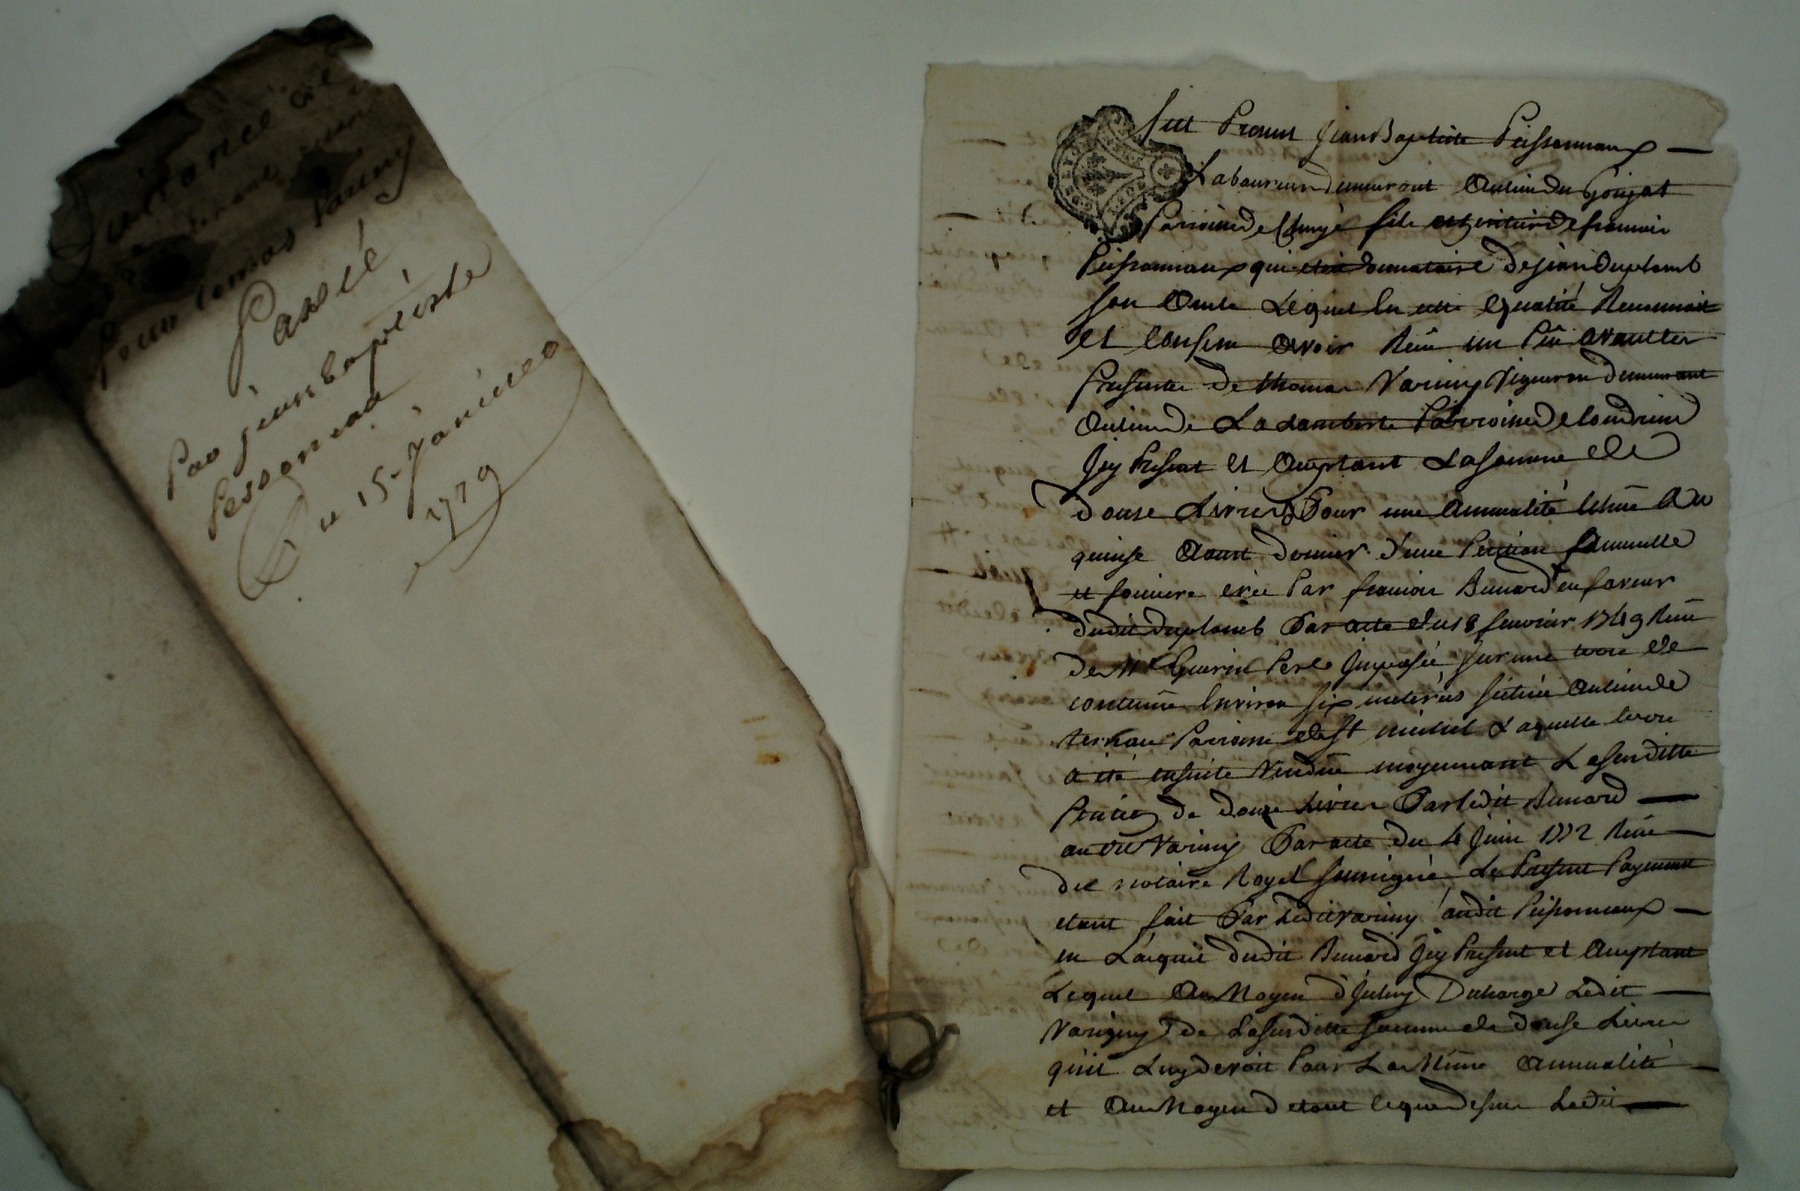 Quitance de
pour tomas Vareny
Passé
Par jean baptiste
Pessonneau
Du 15 Janvier
1779
fut Present Jean Baptiste Peissonneaux
Laboureur demeurant au lieu du Goujat
Parroisse de fils et heritier de francois
Peissonneaux qui etoit donnataire de jean Duplomb
son oncle Lequel En cette qualité Reconnoit
et Confesse avoir Reçu un peu avant les
Presentes de thomas Vareny Vigneron demeurant
au lieu de La Lamberte Parroisse de
Jcy Present et acceptant La somme de
douse Livres Pour une annualité echue Au
quinse Aoust dernier d'une Pention annuelle
et fonciere créé Par francois Benard en faveur
dudit Duplomb Par acte du 18 fevrier 1749 Reçu
de Me Guerin Pere Jmposée sur une terre de
contenue Environ six meterées scituée au lieu de
Parroisse de St michel Laquelle terre
a été ensuite Vendue moyennant La susditte
Pention de douze Livres Par ledit Benard
audit Vareny Par acte du 4 Juin 1772 Reçu
du notaire Royal soussigné Le Present Payement
etant fait Par Ledit vareny audit Peissonneaux
en L'acquit dudit Benard Jcy Present et acceptant
Lequel Au Moyen d'Jceluy Decharge Ledit
Varigny de La susditte somme de douse Livres
qu'il Luy devoit Pour La Même annualité
et Au Moyen de tout ce que dessus Ledit